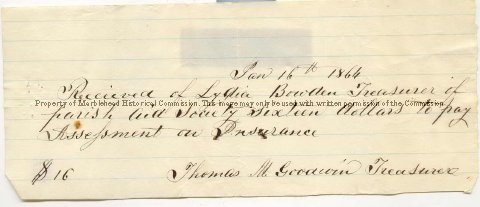 Jan 16th 1864
Recieved of Lydia Bowden Treasurer of
Property of Marblehead Historical Commission. This image may only be used with written permission of the Commission.
parish Aid Society Sixteen dollars to pay
Assessment on Insurance
$16 Thomas M Goodwin Treasurer